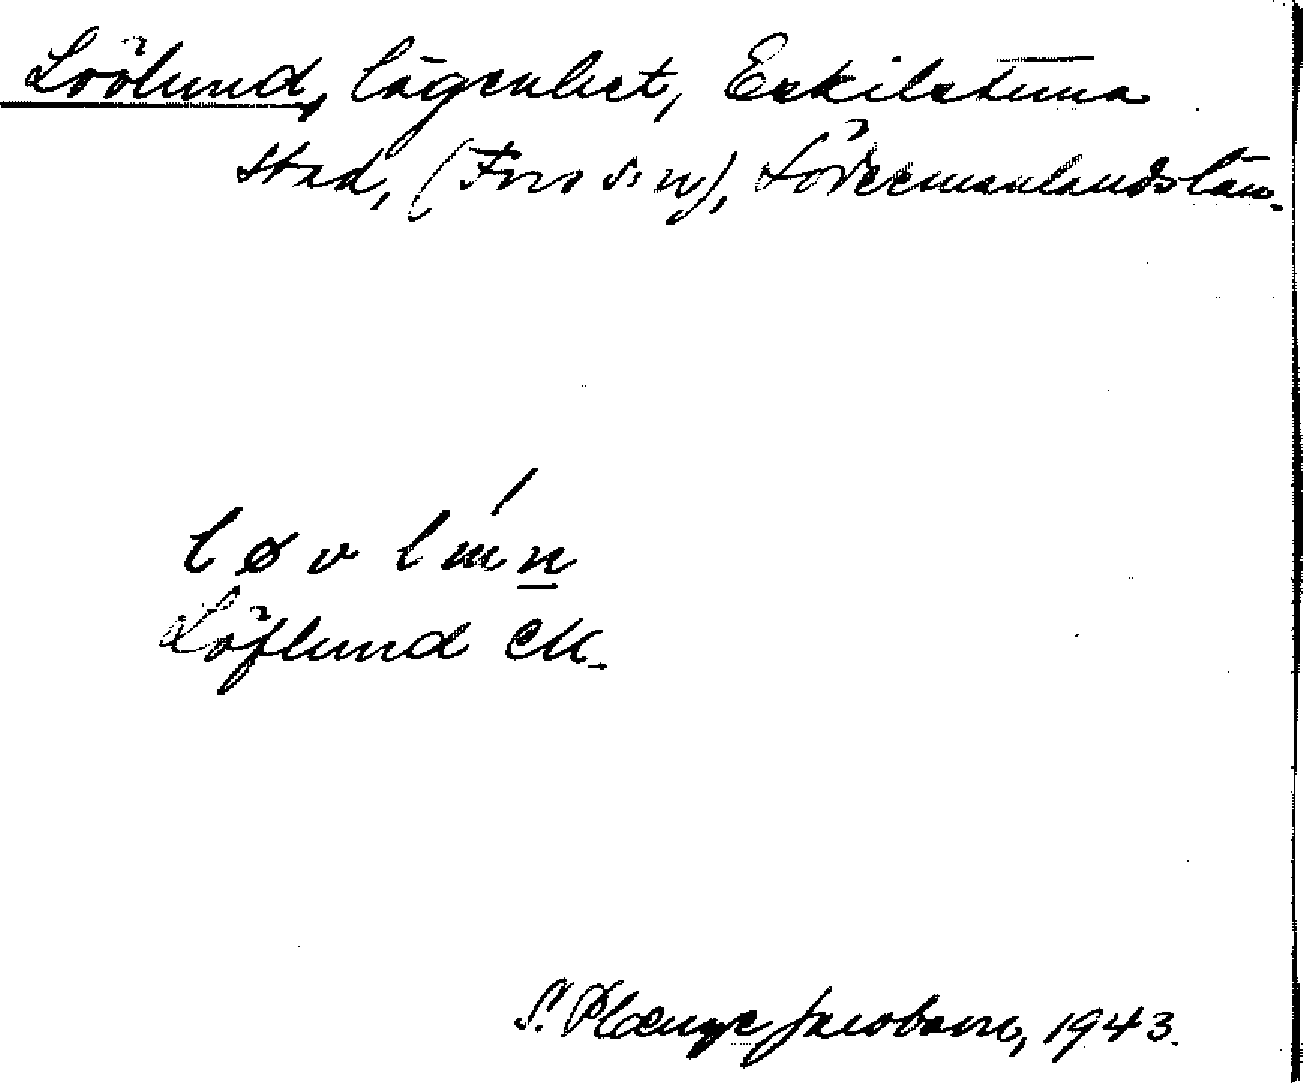 Lövlund, lägenhet, Eskilstuna
stad, (Fors sn), Södermanlands län.
løvlun
Löflund EK.
S. Plænge Jacobson, 1943.